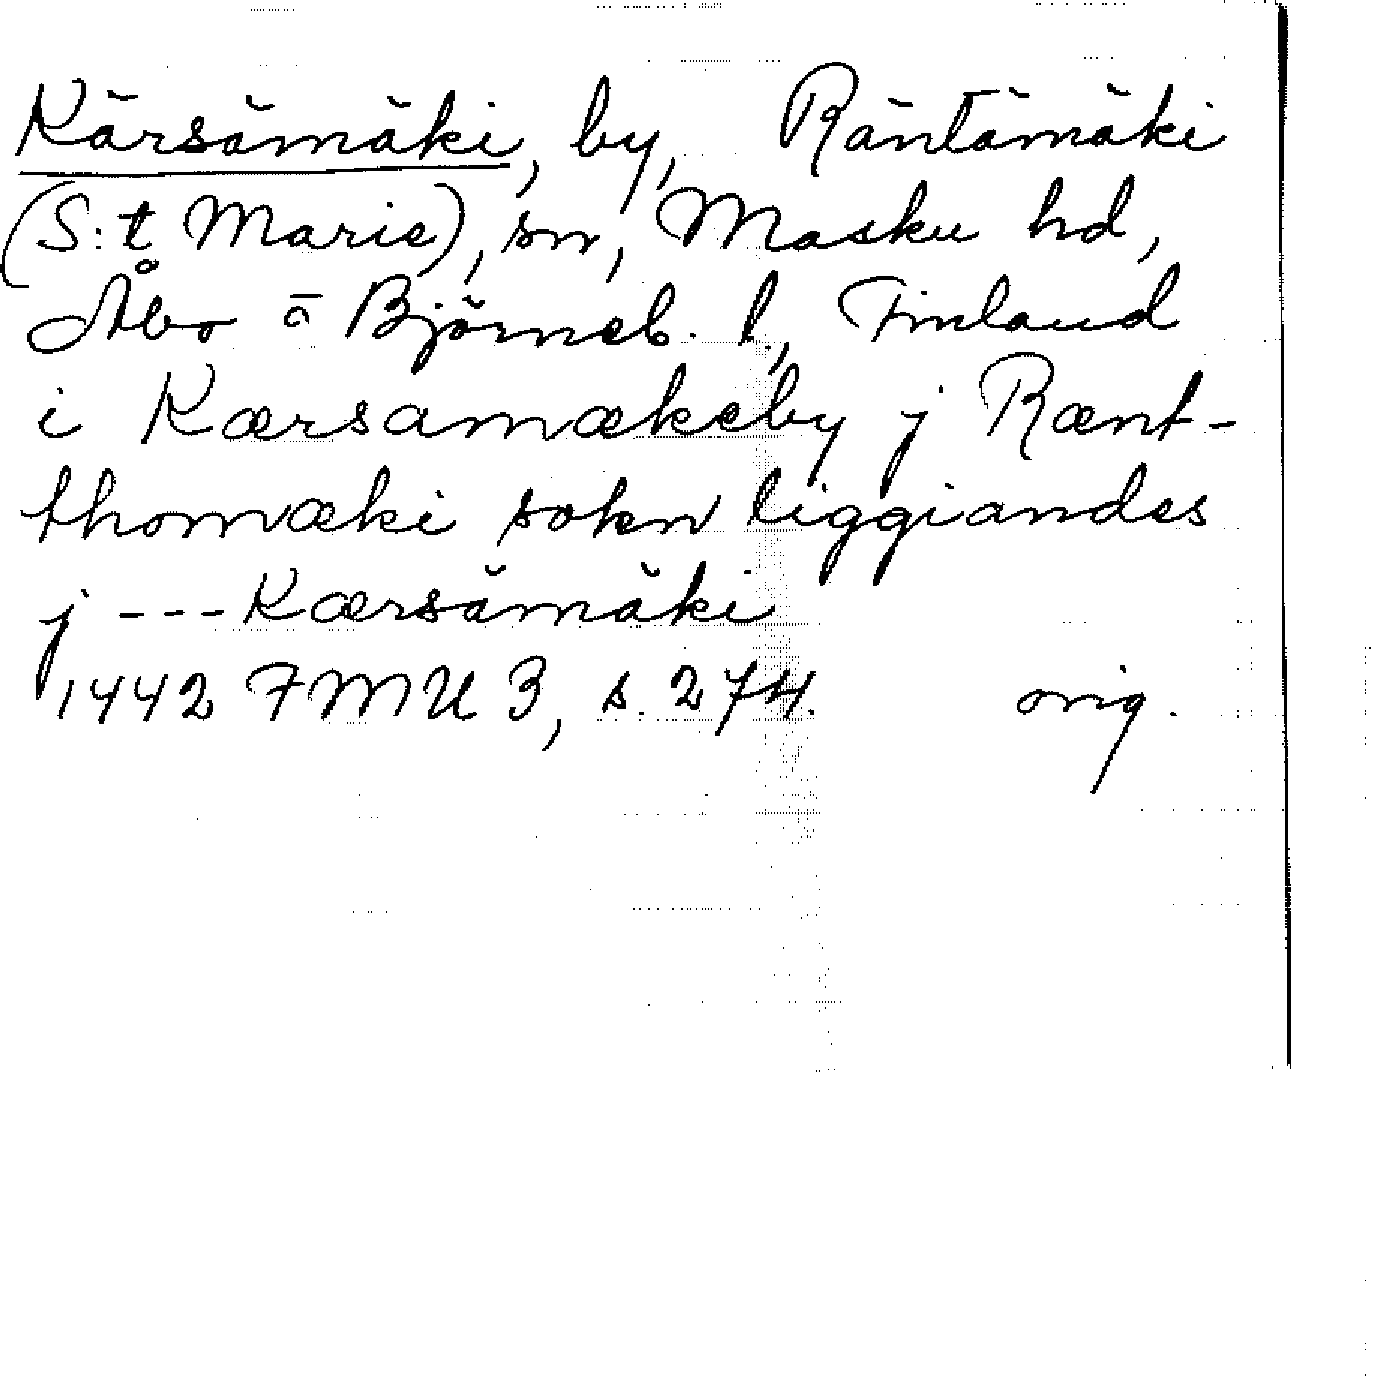 Kärsämäki, by, Räntämäki
(S:t Marie), sn, Masku hd,
Åbo o Björneb. l., Finland
i Kærsamækeby j Rænt-
thomæki sokn liggiandes
j --- Kærsämäki
1442 FMU 3, s. 274. orig.